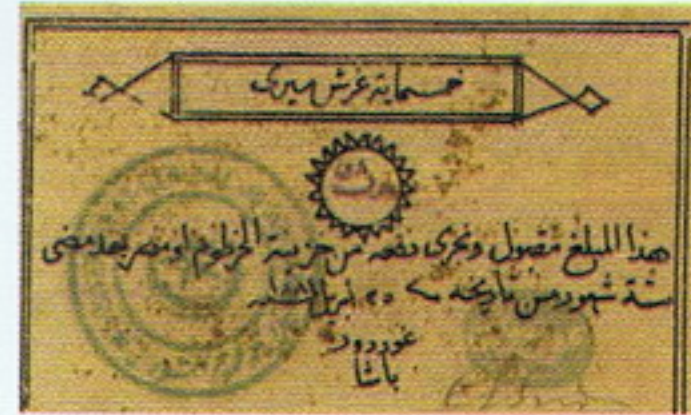 خمسماية غرش ميرى
هذا المبلغ مقبول ونجرى دفعه من خزينة الخرطوم او مصر بعد مضى
ستة شهور من تاريخه ٢٥ ابريل
غوردون
باشا